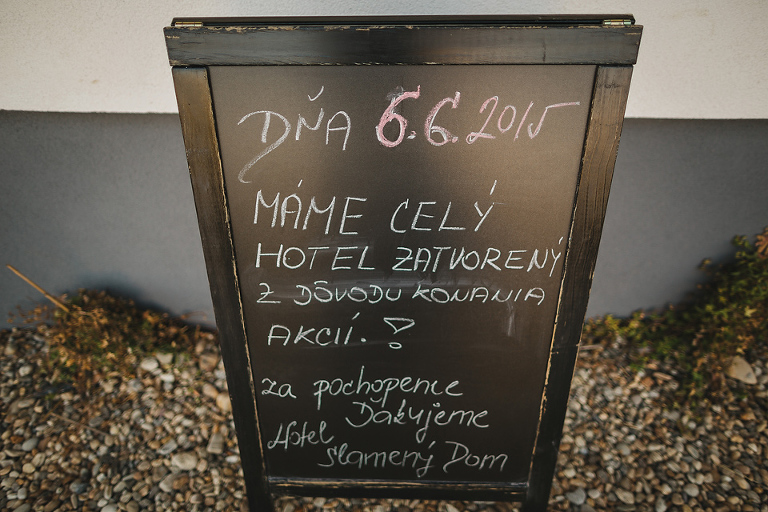 DŇA 6.6.2015
MÁME CELÝ
HOTEL ZATVORENÝ
Z DÔVODU KONANIA
AKCIÍ.!
za pochopenie
Ďakujeme
Hotel
Slamený Dom